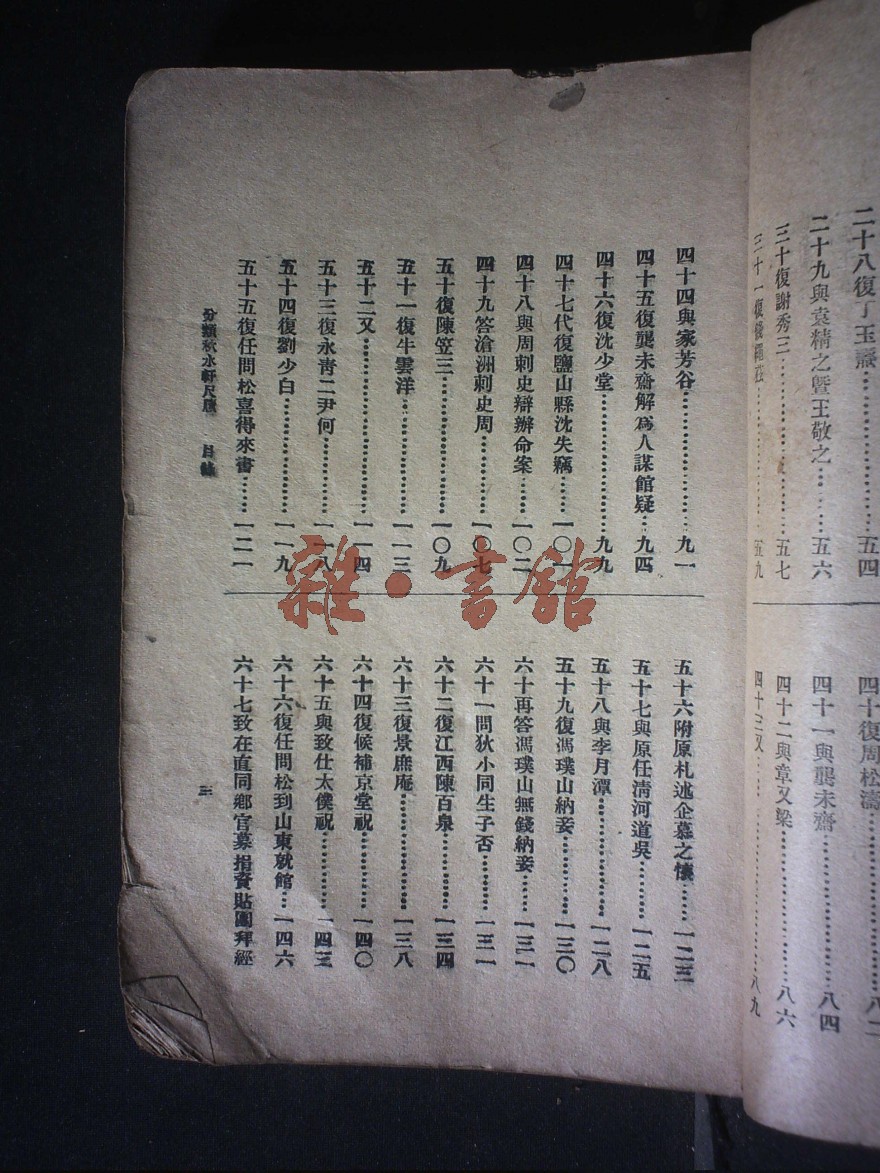 二十八復丁玉……五四
二十九與袁精之暨王敬之……五六
三十復謝秀三……五七
三十一復……五九
四十復周松濤……八二
四十一與龔未齋……八四
四十二與章又梁……八六
四十三又……八九
四十四與家芳谷……九一
四十五復龔未齋解爲人謀館疑…九四
四十六復沈少堂……九九
四十七代復鹽山縣沈失竊……一〇一
四十八與周刺史辯辦命案……一〇二
四十九答滄洲刺史周……一〇七
五十復陳笠三……一〇九
五十一復牛雲洋……一一三
五十二又……一一四
五十三復永靑二尹何……一一八
五十四復劉少白……一一九
五十五復任問松喜得來書……一二一
五十六附原札述企慕之懷……一二三
五十七與原任淸河道吳……一二五
五十八與李月潭……一二八
五十九復馮璞山納妾……一三〇
六十再答馮璞山無錢納妾……一三一
六十一問狄小同生子否……一三一
六十二復江西陳百泉……一三四
六十三復景庶庵……一三八
六十四復候補京堂祝……一四〇
六十五與致仕太僕祝……一四三
六十六復任問松到山東就館…一四六
六十七致在直同鄉官募捐資貼圖拜經
分類秋水軒尺牘 目錄 三
雜·書館